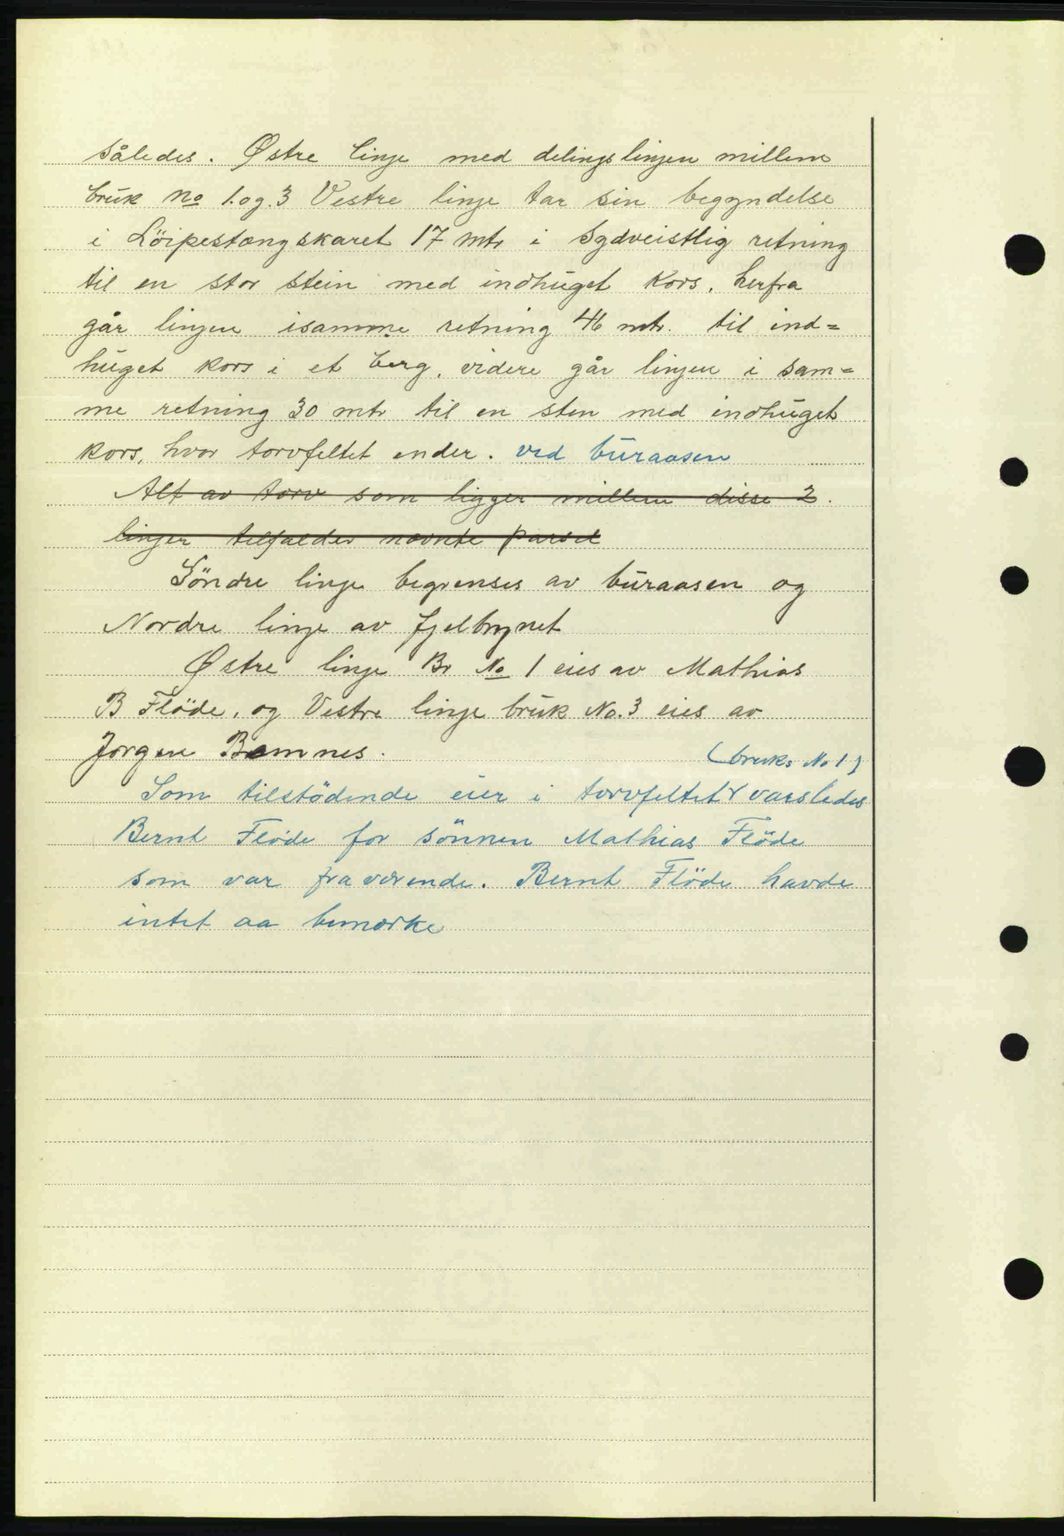 således. Østre linje med delingslinjen millem
bruk No 1. og. 3 Vestre linje tar sin begyndelse
i Löipestangskaret 17 mtr i Sydveistlig retning
til en stor stein med indhuget kors, herfra
går linjen isamme retning 46 mtr. til ind=
huget kors i et berg, videre går linjen i sam=
me retning 30 mtr til en sten med indhuget
kors, hvor torvfeltet ender. ved buraasen
Alt av torv som ligger millem disse 2.
linjer tilfalder nævnte parsel
Söndre linje begrenses av buraasen og
Nordre linje av fjelbrynet
Østre linje Br No 1 eies av Mathias
B Flöde, og Vestre linje bruk No. 3 eies av
Jørgen Bamnes.
(bruks No 1)
Som tilstödende eier i torvfeltet varsledes
Bernt Flöde for sönnen Mathias Flöde
som var fraværende. Bernt Flöde havde
intet aa bemærke